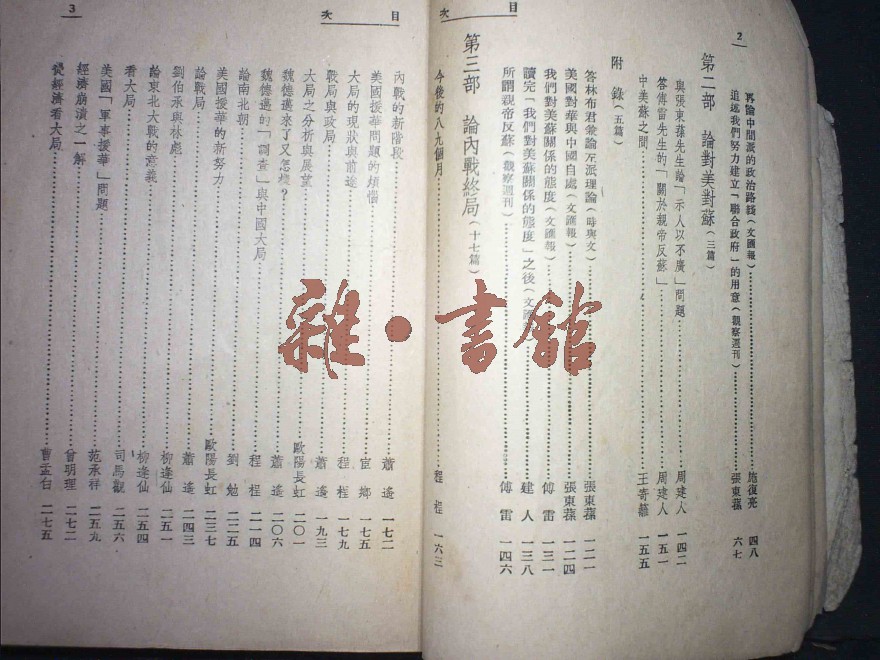 目次
2
再論中間派的政治路綫（文匯報）⋯⋯施復亮 四八
追述我們努力建立「聯合政府」的用意（觀察週刊）⋯⋯張東蓀 六七
第二部 論對美對蘇（三篇）
與張東蓀先生論「示人以不廣」問題⋯⋯周建人 一四二
答傅雷先生的「關於親帝反蘇」⋯⋯周建人 一五一
中美蘇之間⋯⋯王寄蘅 一五五
附錄（五篇）
答林布君兼論左派理論（時與文）⋯⋯張東蓀 一二一
美國對華與中國自處（文匯報）⋯⋯張東蓀 一二四
我們對美蘇關係的態度（文匯報）⋯⋯傅雷 一三一
讀完「我們對美蘇關係的態度」之後（文匯⋯⋯建人 一三八
所謂親帝反蘇（觀察週刊）⋯⋯傅雷 一四六
第三部 論內戰終局（十七篇）
今後的八九個月⋯⋯程桯 一六三
目次
3
內戰的新階段⋯⋯蕭遙 一七二
美國援華問題的煩惱⋯⋯宦鄉 一七五
大局的現狀與前途⋯⋯程桯 一七九
戰局與政局⋯⋯蕭遙 一九三
大局之分析與展望⋯⋯歐陽長虹 二〇一
魏德邁來了又怎樣？⋯⋯蕭遙 二〇六
魏德邁的「調查」與中國大局⋯⋯程桯 二一四
論南北朝⋯⋯劉勉 二二五
美國援華的新努力⋯⋯歐陽長虹 二三七
論戰局⋯⋯蕭遙 二四三
劉伯承與林彪⋯⋯柳逢仙 二五一
論東北大戰的意義⋯⋯柳逢仙 二五四
看大局⋯⋯司馬觀 二五六
美國「軍事援華」問題⋯⋯范承祥 二五九
經濟崩潰之一解⋯⋯曾明理 二七二
從經濟看大局⋯⋯曹孟台 二七五
雜·書館